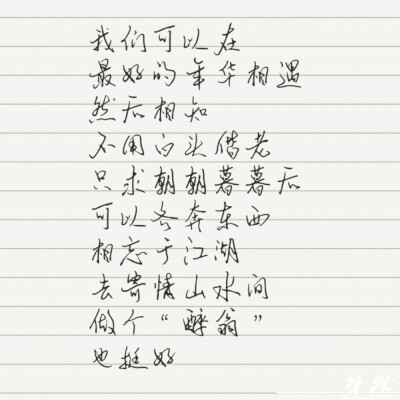 我们可以在
最好的年华相遇
然后相知
不用白头偕老
只求朝朝暮暮后
可以各奔东西
相忘于江湖
去寄情山水间
做个“醉翁”
也挺好